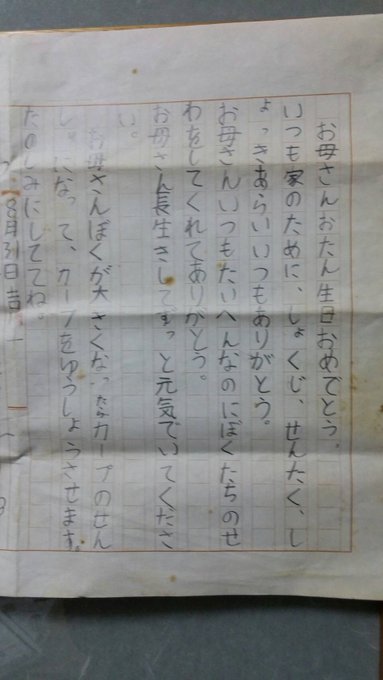 お母さんおたん生日おめでとう。
いつも家のために、しょくじ、せんたく、し
ょっきあらいいつもありがとう。
お母さんいつもたいへんなのにぼくたちのせ
わをしてくれてありがとう。
お母さん長生きしてずっと元気でいてくださ
い。
お母さんぼくが大きくなったらカープのせん
しゅになって、カープをゆうしょうさせます。
たのしみにしててね。
8月31日吉